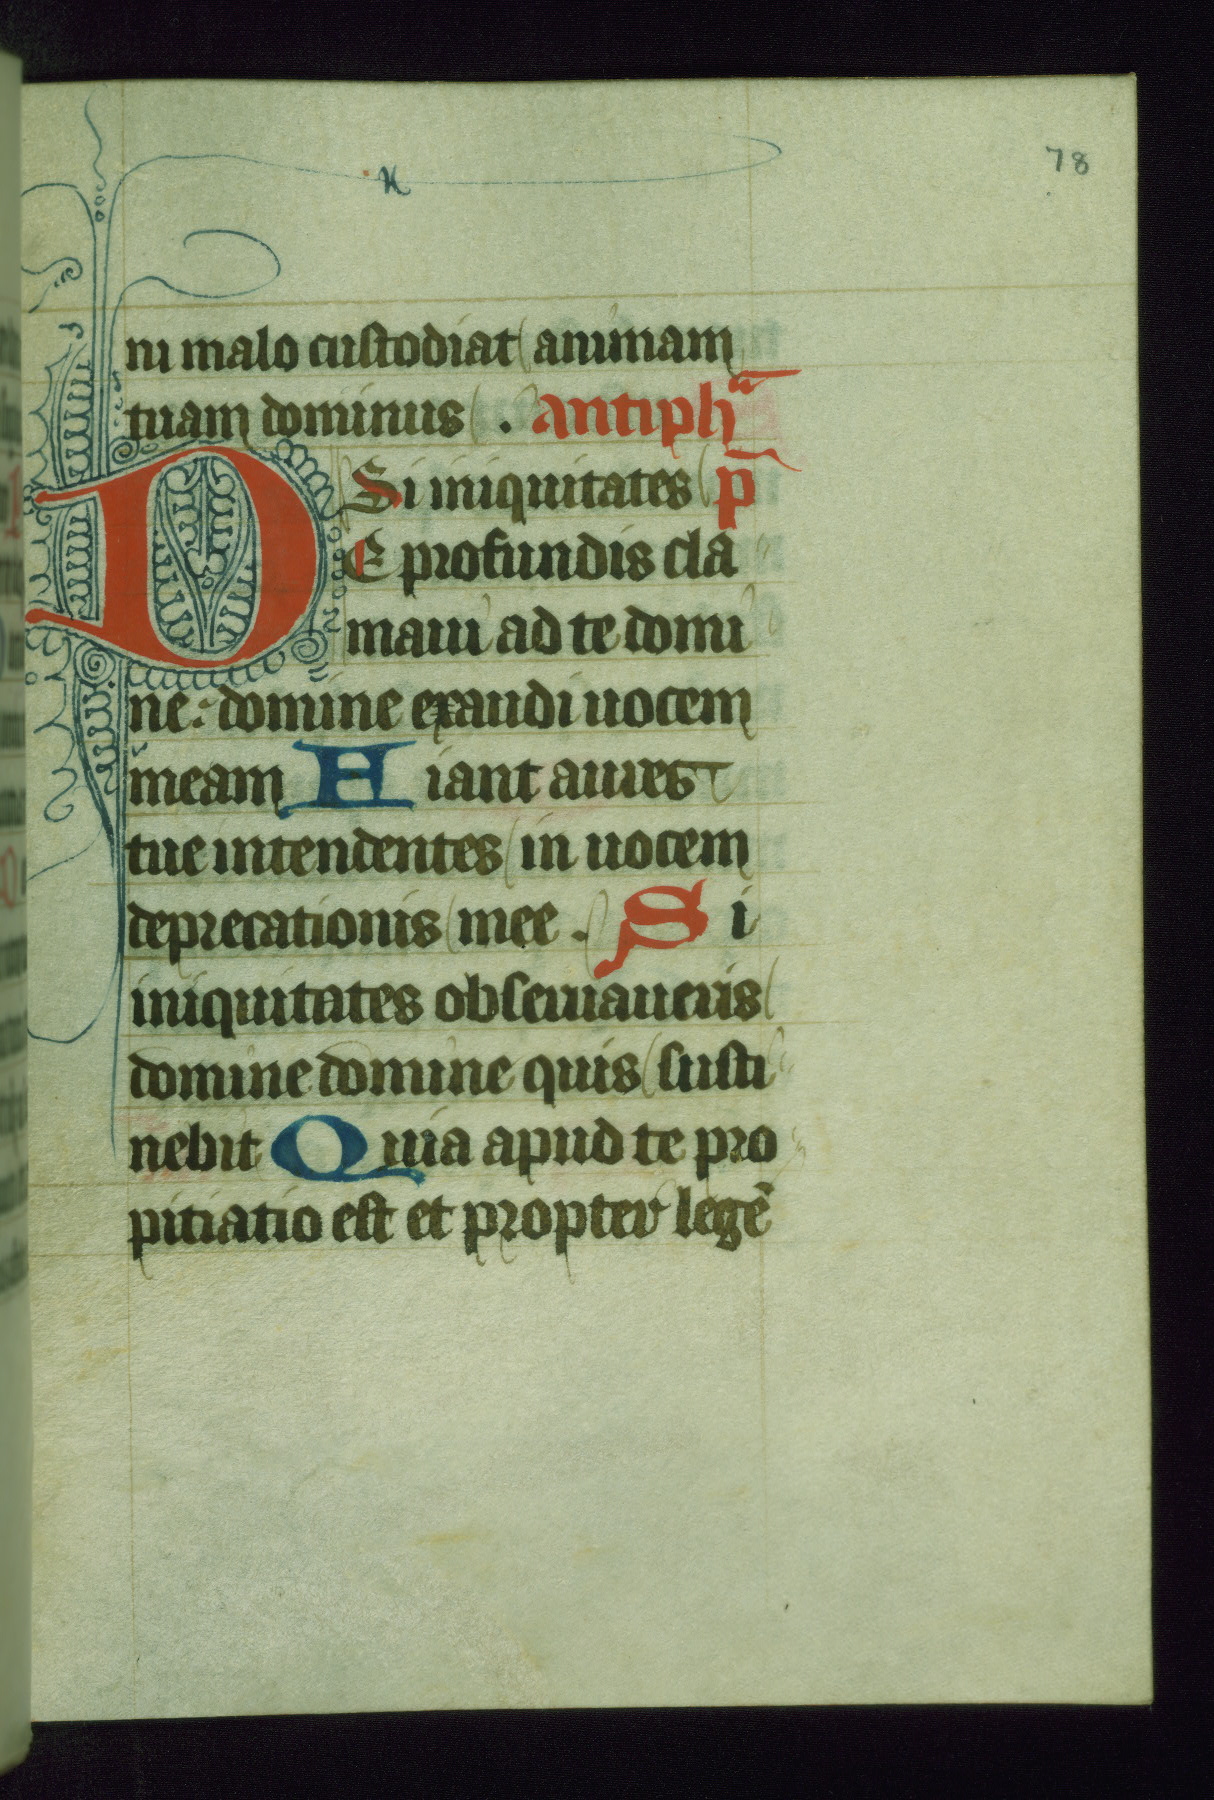 78
ni malo custodiat animam
tuam dominus . antiphᵃ
Si iniquitates p̄
DE profundis cla
maui ad te domi
ne: domine exaudi uocem
meam Fiant aures
tue intendentes in uocem
deprecationis mee . Si
iniquitates obseruaueris
domine domine quis susti
nebit Quia apud te pro
pitiatio est et propter legē